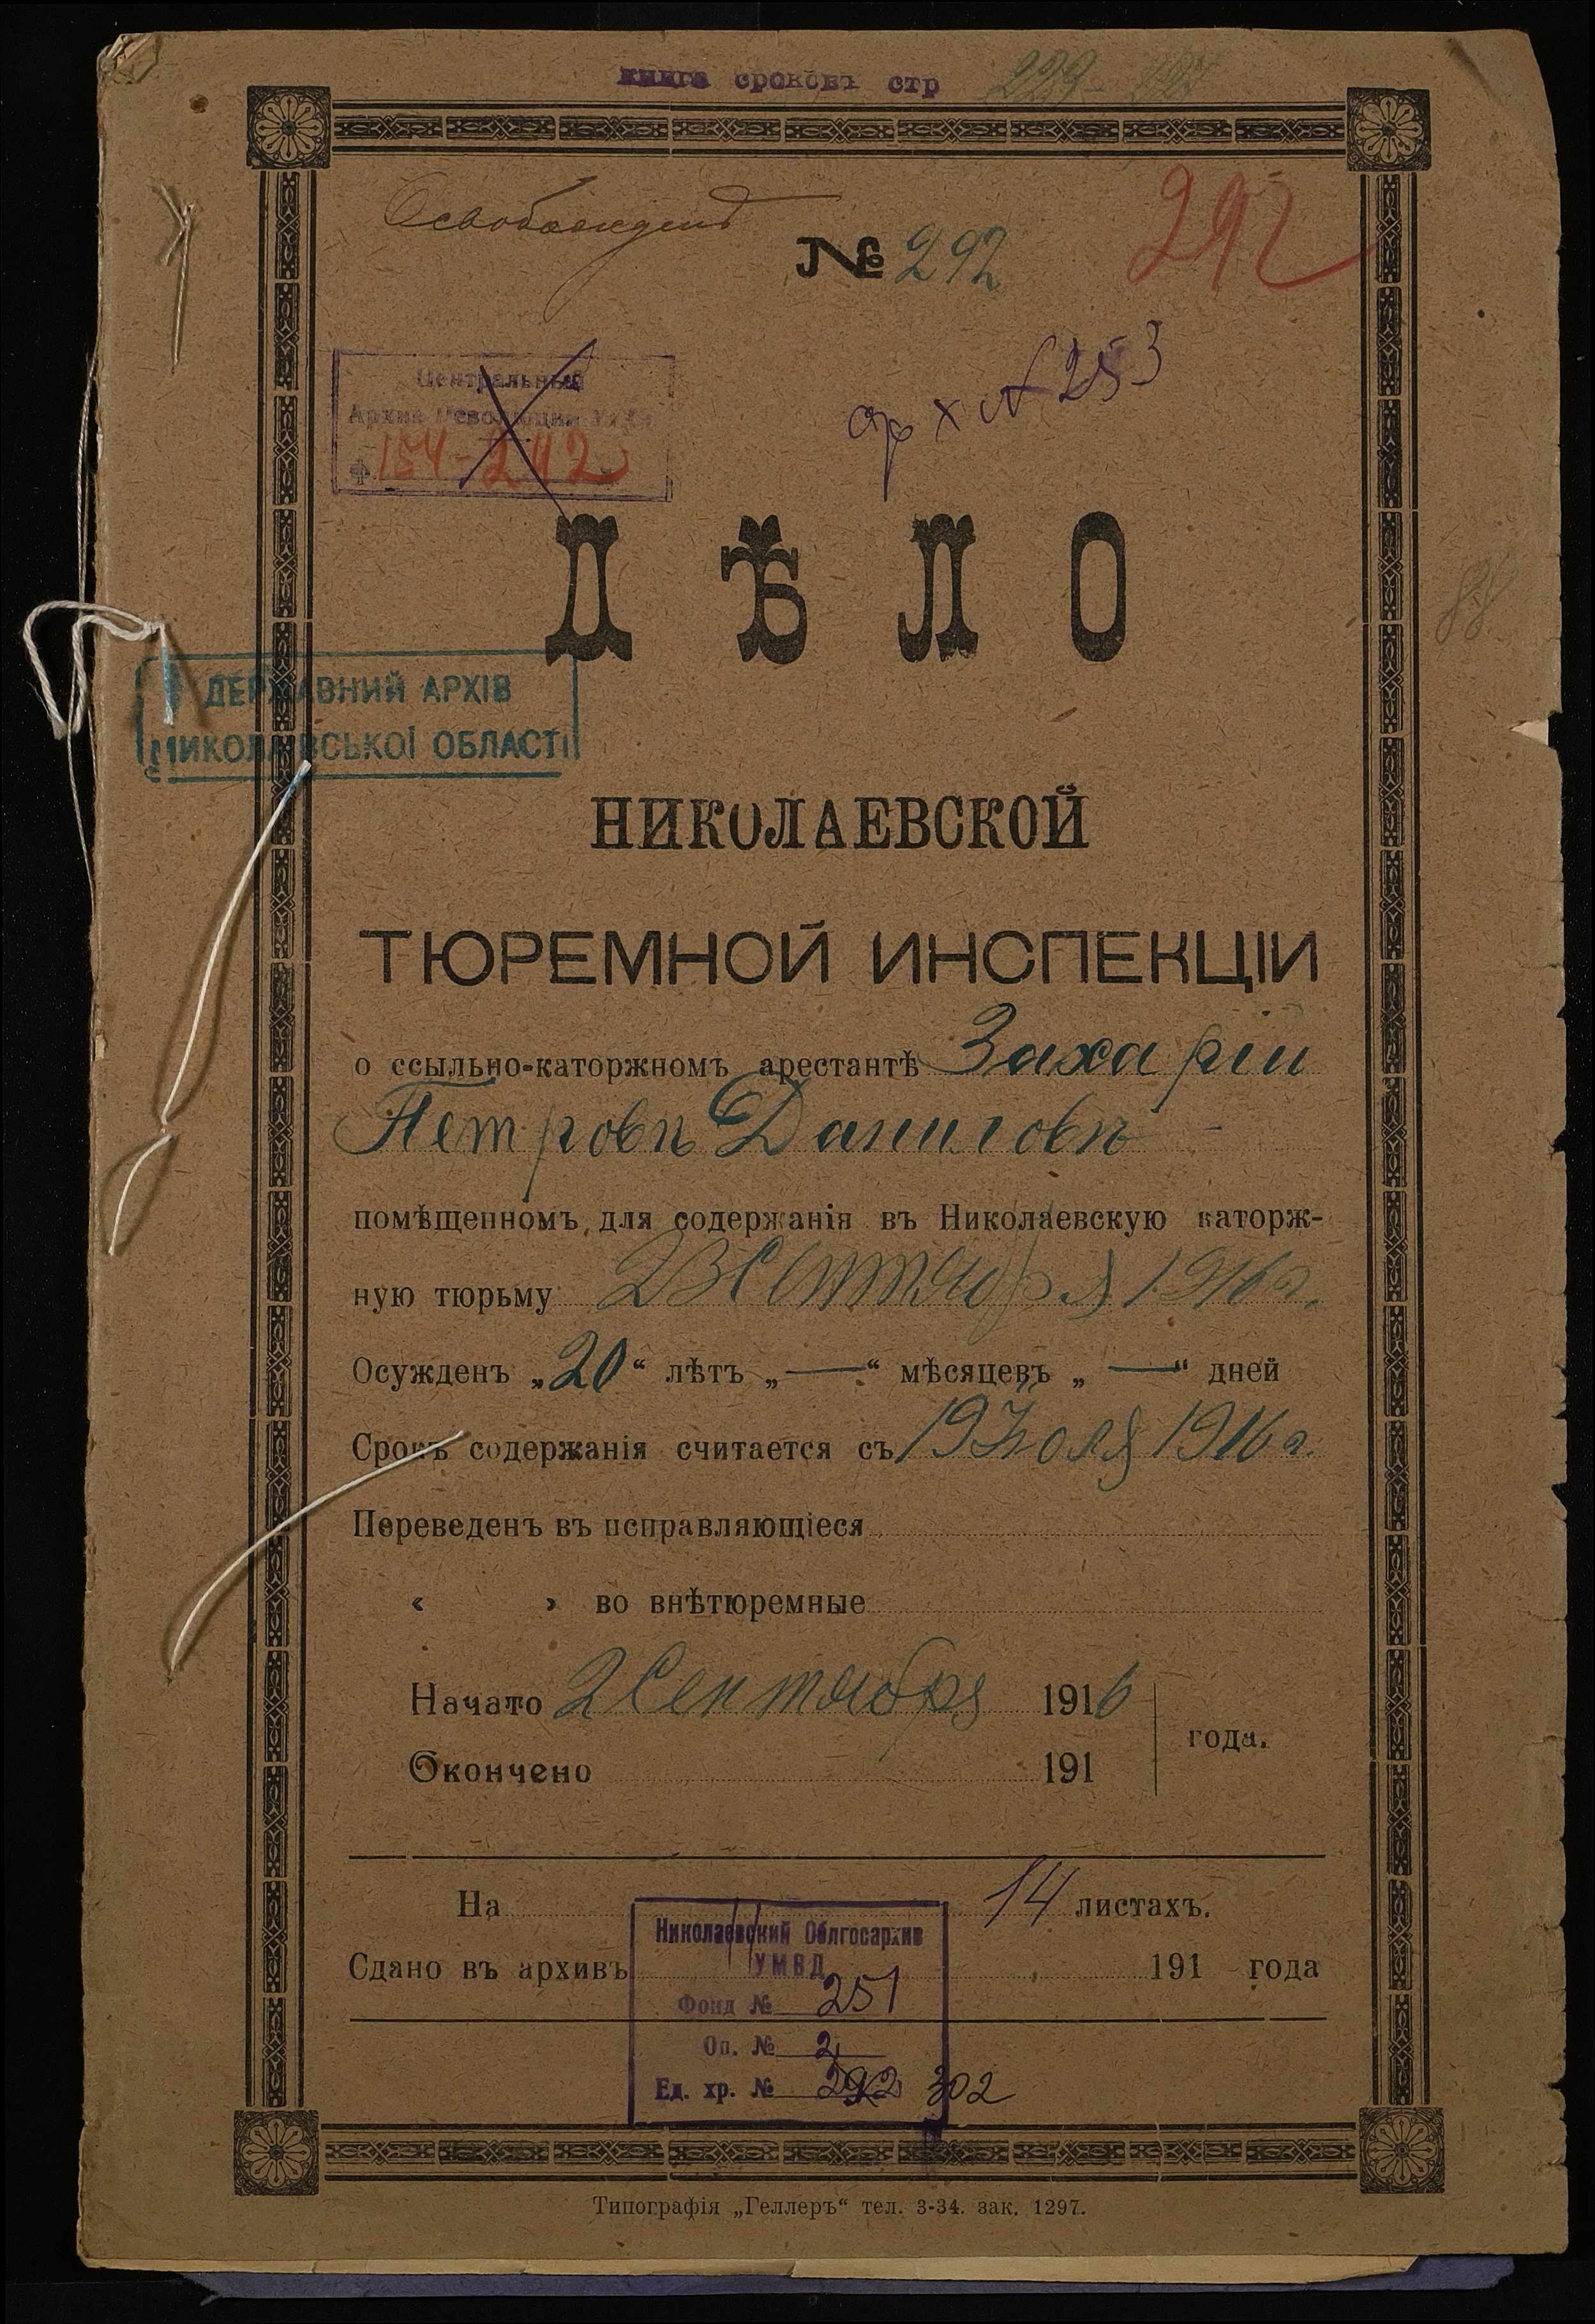 книга сроковъ стр 229
Освобожденъ
№ 292
292
арх № 253
Центральный
Архив Революции
ф. 154-242
ДѢЛО
ДЕРЖАВНИЙ АРХІВ
МИКОЛАЇВСЬКОЇ ОБЛАСТІ
НИКОЛАЕВСКОЙ
ТЮРЕМНОЙ ИНСПЕКЦІИ
о ссыльно-каторжномъ арестантѣ Захаріи
Петровѣ Даниловѣ
помѣщенномъ для содержанія въ Николаевскую каторж-
ную тюрьму 2 Сентября 1916 г.
Осужденъ „20“ лѣтъ „—“ мѣсяцевъ „—“ дней
Срокъ содержанія считается съ 19 Іюля 1916 г.
Переведенъ въ исправляющіеся
« » во внѣтюремные
Начато 2 Сентября 1916
года.
Окончено 191
На 14 листахъ.
Николаевский Облгосархив
УМВД
Сдано въ архивъ 191 года
Фонд № 251
Оп. № 2
Ед. хр. № 292 302
Типографія „Геллеръ“ тел. 3-34. зак. 1297.